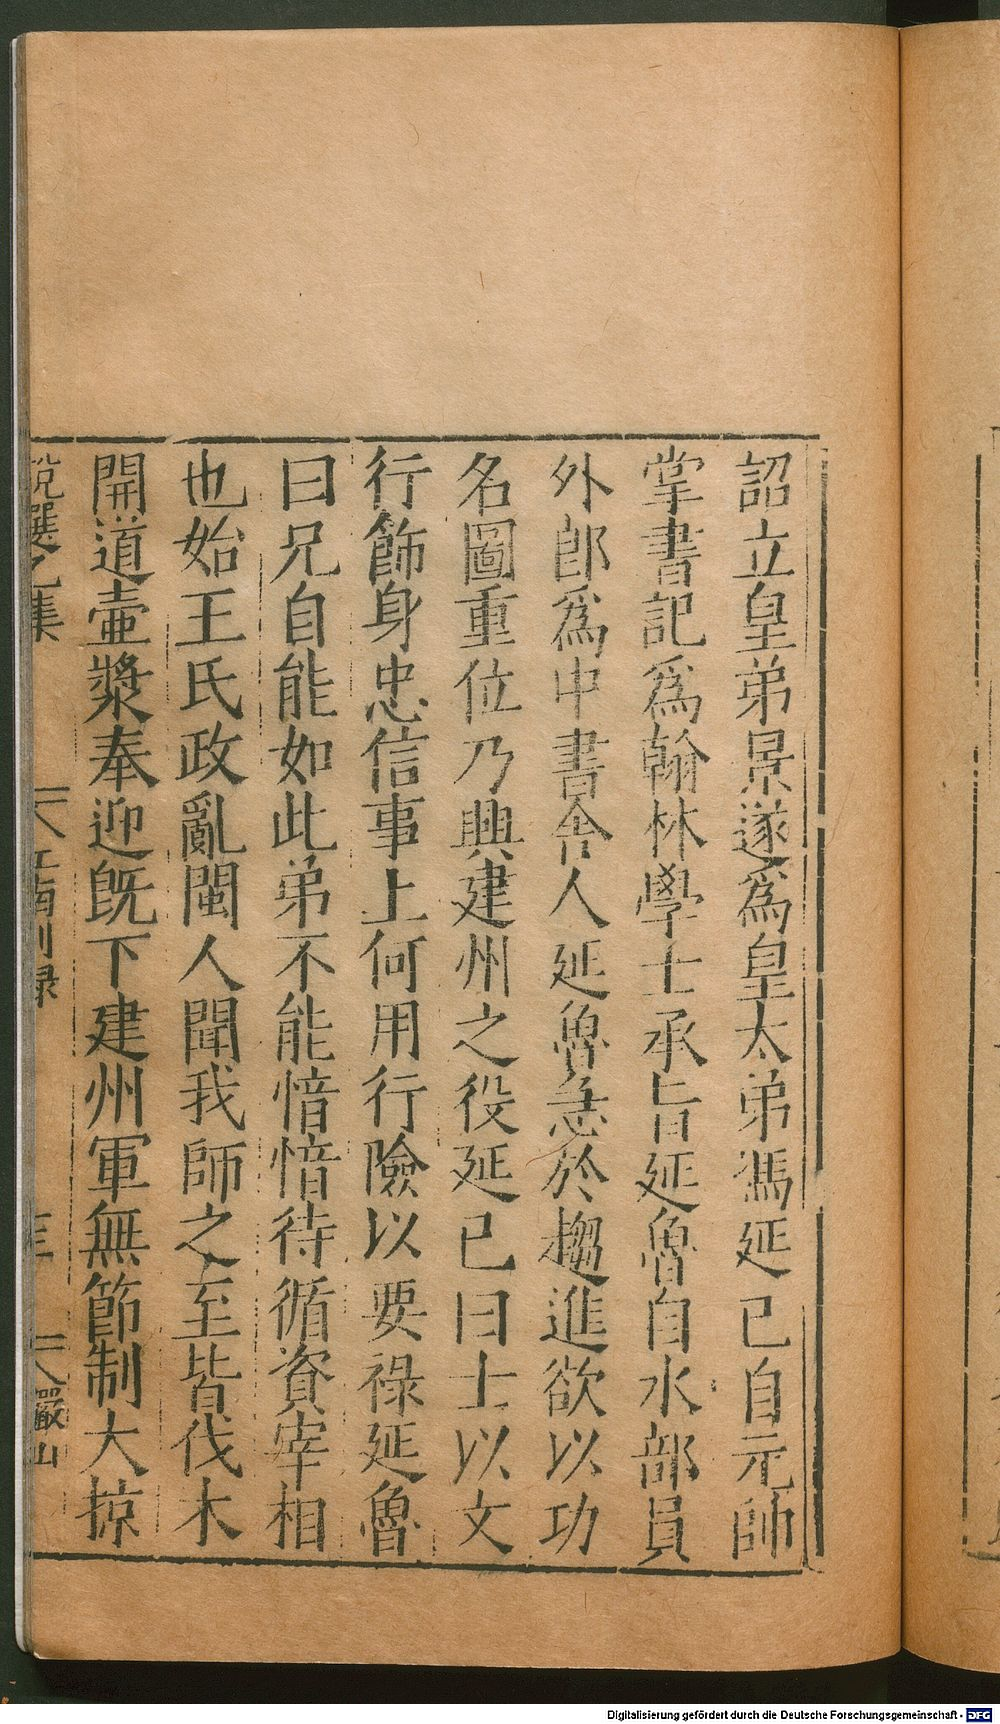 詔立皇弟景遂爲皇太弟馮延已自元帥
掌書記爲翰林學士承旨延魯自水部員
外郎爲中書舍人延魯急於趨進欲以功
名圖重位乃興建州之役延已曰士以文
行飾身忠信事上何用行險以要祿延魯
曰兄自能如此弟不能愔愔待循資宰相
也始王氏政亂閩人聞我師之至皆伐木
開道壷漿奉迎旣下建州軍無節制大掠
說選乙集
江南別録
三
儼山
Digitalisierung gefördert durch die Deutsche Forschungsgemeinschaft - DFG